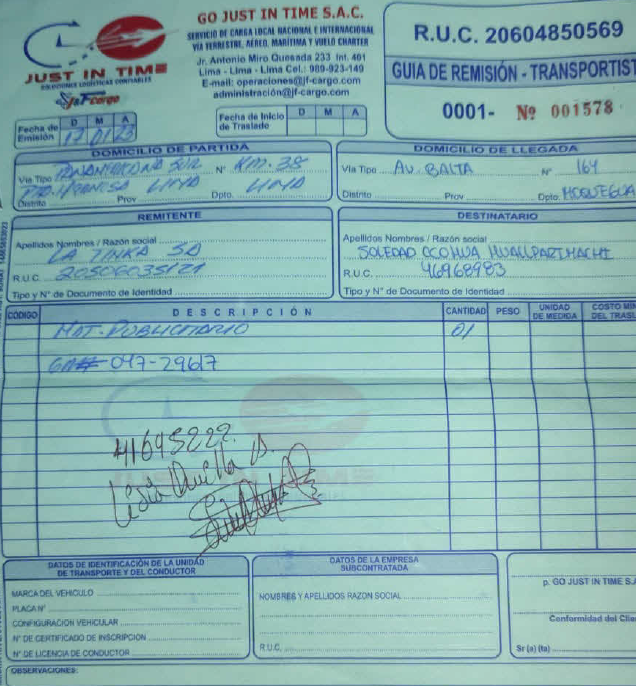 GO JUST IN TIME S.A.C.
SERVICIO DE CARGA LOCAL NACIONAL E INTERNACIONAL
VÍA TERRESTRE, AÉREO, MARÍTIMA Y VUELO CHARTER
Jr. Antonio Miro Quesada 233 Int. 401
Lima - Lima - Lima Cel.: 989-923-149
E-mail: operaciones@jf-cargo.com
administración@jf-cargo.com
JUST IN TIME
SOLUCIONES LOGÍSTICAS CONFIABLES
J&F cargo
R.U.C. 20604850569
GUIA DE REMISIÓN - TRANSPORTIST
0001- Nº 001578
Fecha de Emisión D M A
17 01 23
Fecha de Inicio de Traslado D M A
DOMICILIO DE PARTIDA
Vía Tipo PANAMERICANA SUR Nº KM. 38
Distrito Prov LIMA Dpto. LIMA
DOMICILIO DE LLEGADA
Vía Tipo AV. BALTA Nº 164
Distrito Prov Dpto. MOQUEGUA
REMITENTE
Apellidos Nombres / Razón social
LA TINKA SA
R.U.C. 20506035121
Tipo y N° de Documento de Identidad
DESTINATARIO
Apellidos Nombres / Razón social
SOLEDAD CCOHUA HUALLPARIMACHI
R.U.C. 46968983
Tipo y N° de Documento de Identidad
CÓDIGO DESCRIPCIÓN CANTIDAD PESO UNIDAD DE MEDIDA COSTO DEL
MAT. PUBLICITARIO 01
047-29617
41645222
JUST IN TIME
DATOS DE IDENTIFICACIÓN DE LA UNIDAD
DE TRANSPORTE Y DEL CONDUCTOR
MARCA DEL VEHICULO
PLACA N°
CONFIGURACION VEHICULAR
N° DE CERTIFICADO DE INSCRIPCION
N° DE LICENCIA DE CONDUCTOR
DATOS DE LA EMPRESA
SUBCONTRATADA
NOMBRES Y APELLIDOS RAZON SOCIAL
R.U.C.
p. GO JUST IN TIME S.A
Conformidad del Clie
Sr (a) (ta)
OBSERVACIONES: